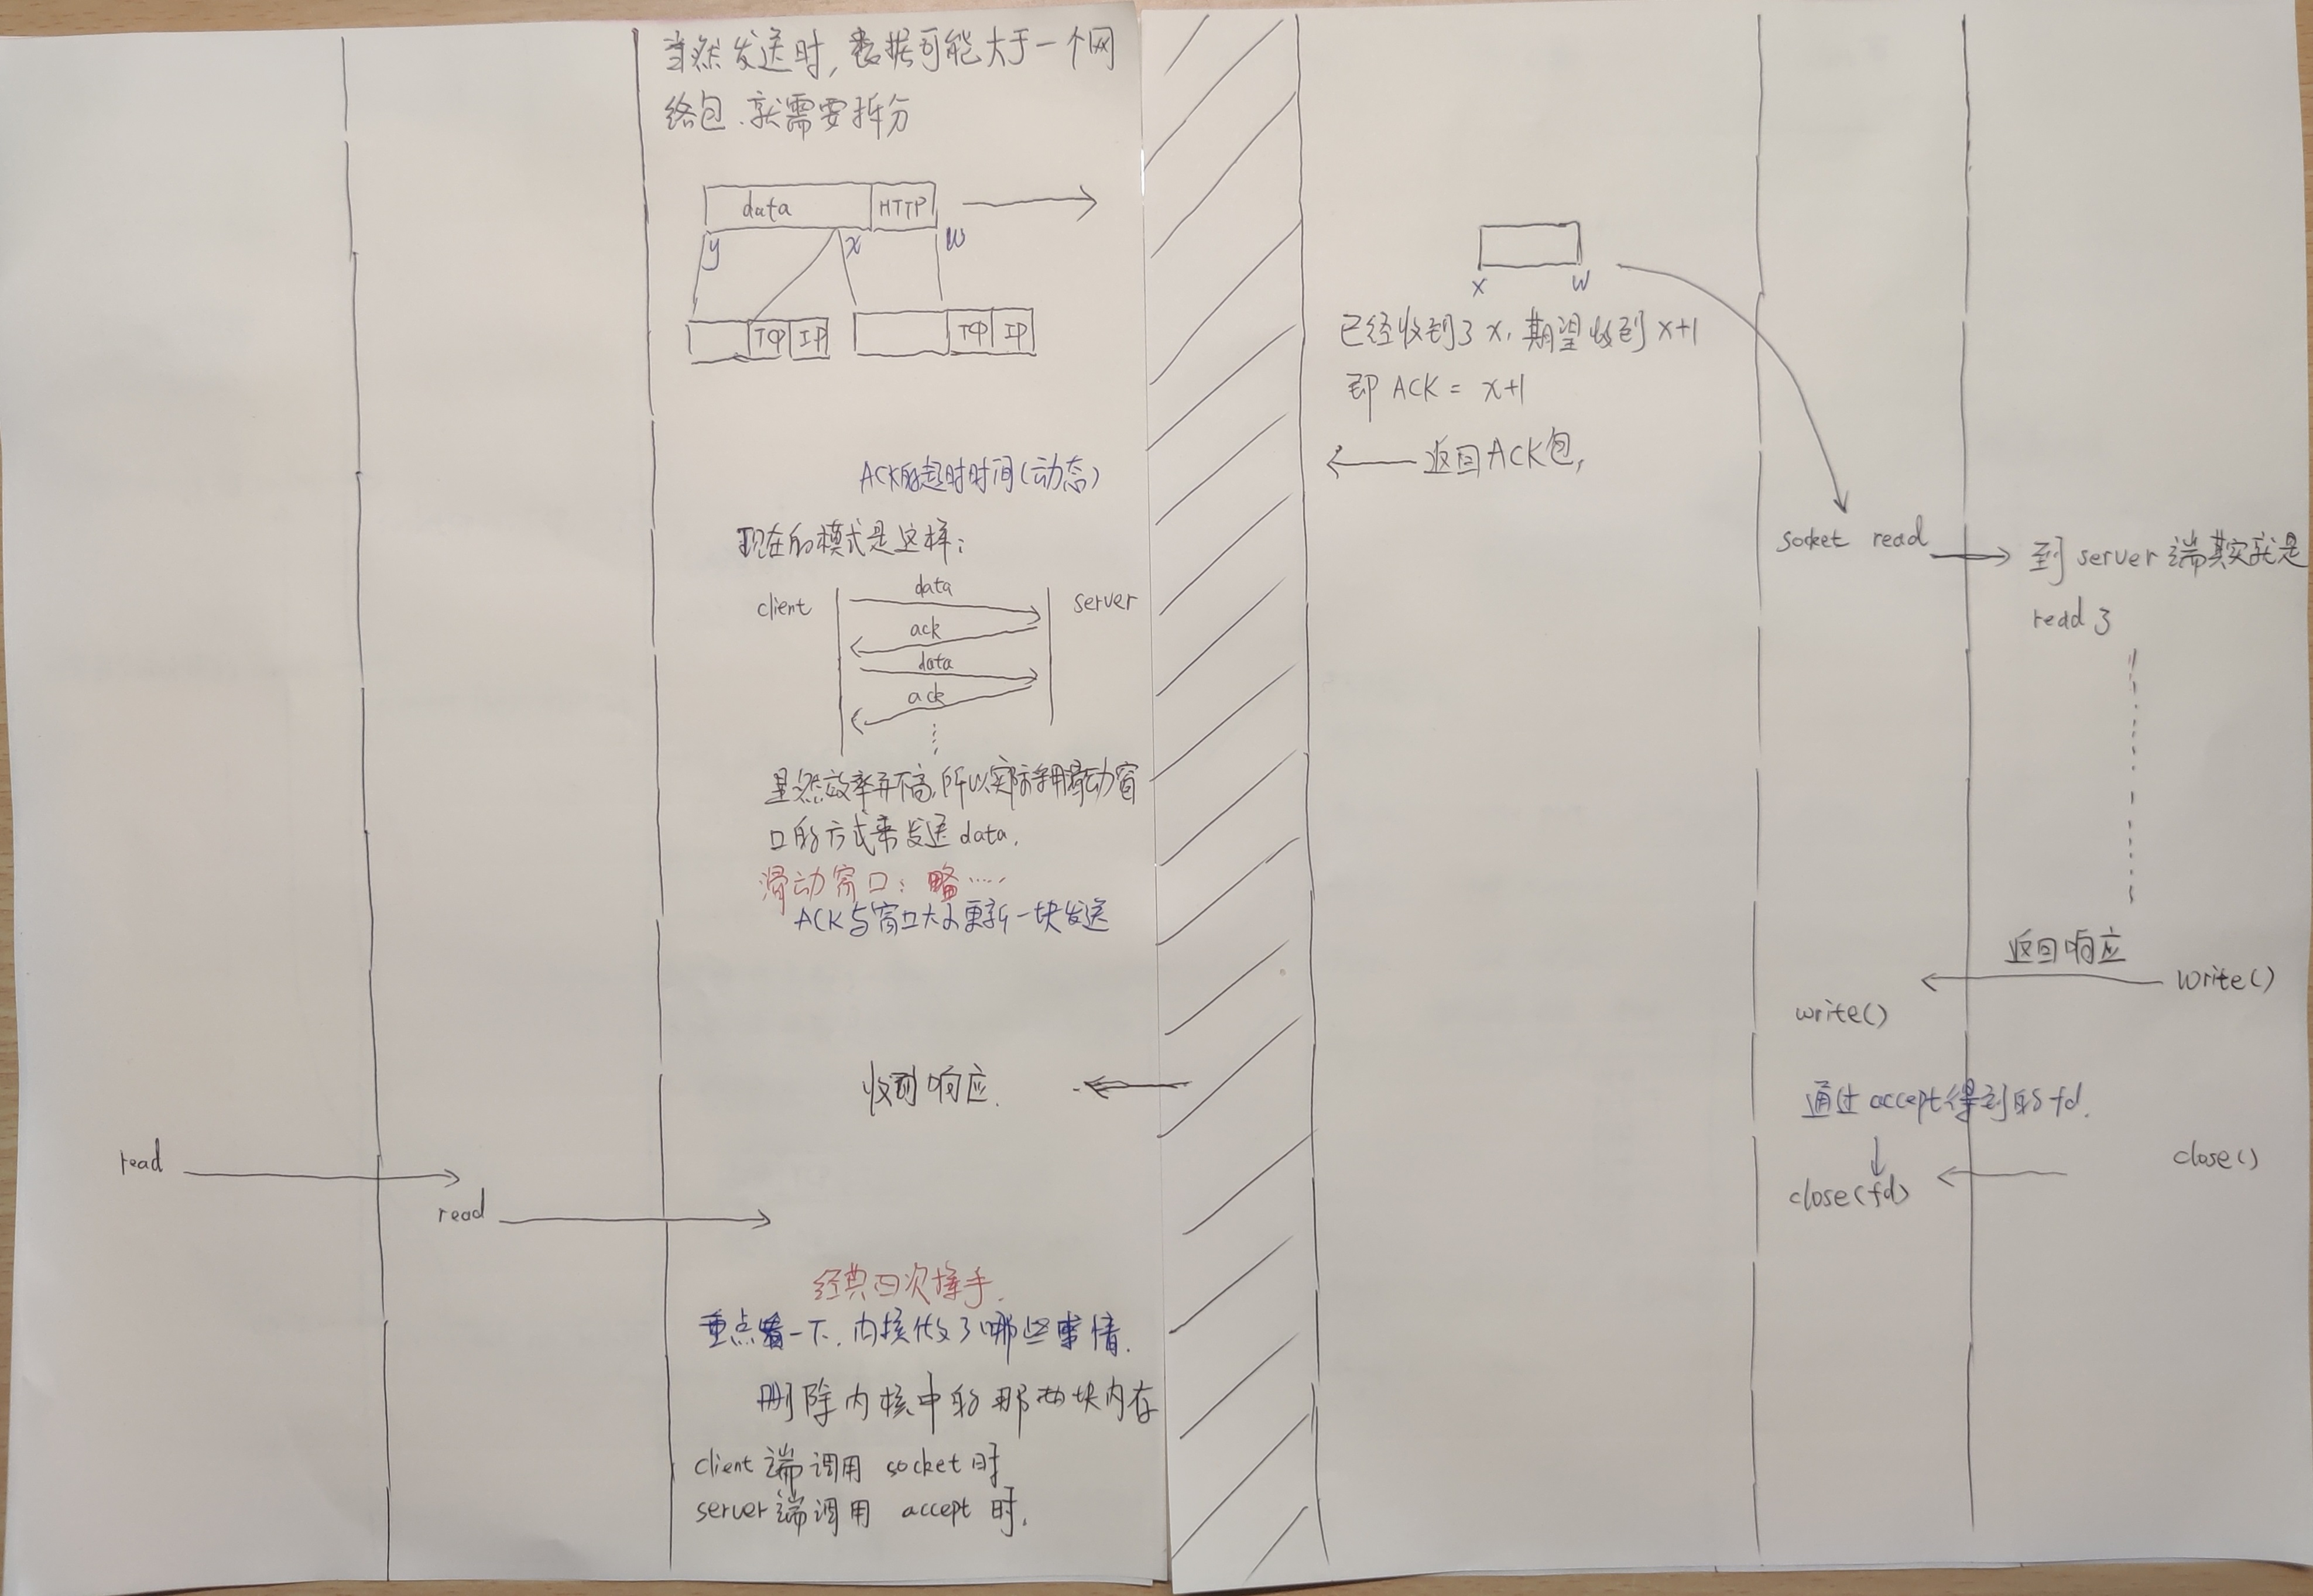 当然发送时，数据可能大于一个网
络包．就需要拆分
data HTTP
y x w
TCP IP TCP IP
ACK的超时时间（动态）
现在的模式是这样：
client server
data
ack
data
ack
显然效率并不高，所以实际采用滑动窗
口的方式来发送 data．
滑动窗口：略……
ACK与窗口大小更新一块发送
收到响应．
read
read
经典四次挥手．
重点看一下．内核做了哪些事情．
删除内核中的那两块内存
client 端调用 socket 时
server 端调用 accept 时．
x w
已经收到了 x，期望收到 x+1
即 ACK = x+1
返回ACK包，
socket read
到 server 端其实就是
read 了
返回响应
write()
write()
通过 accept 得到的 fd．
close()
close(fd)